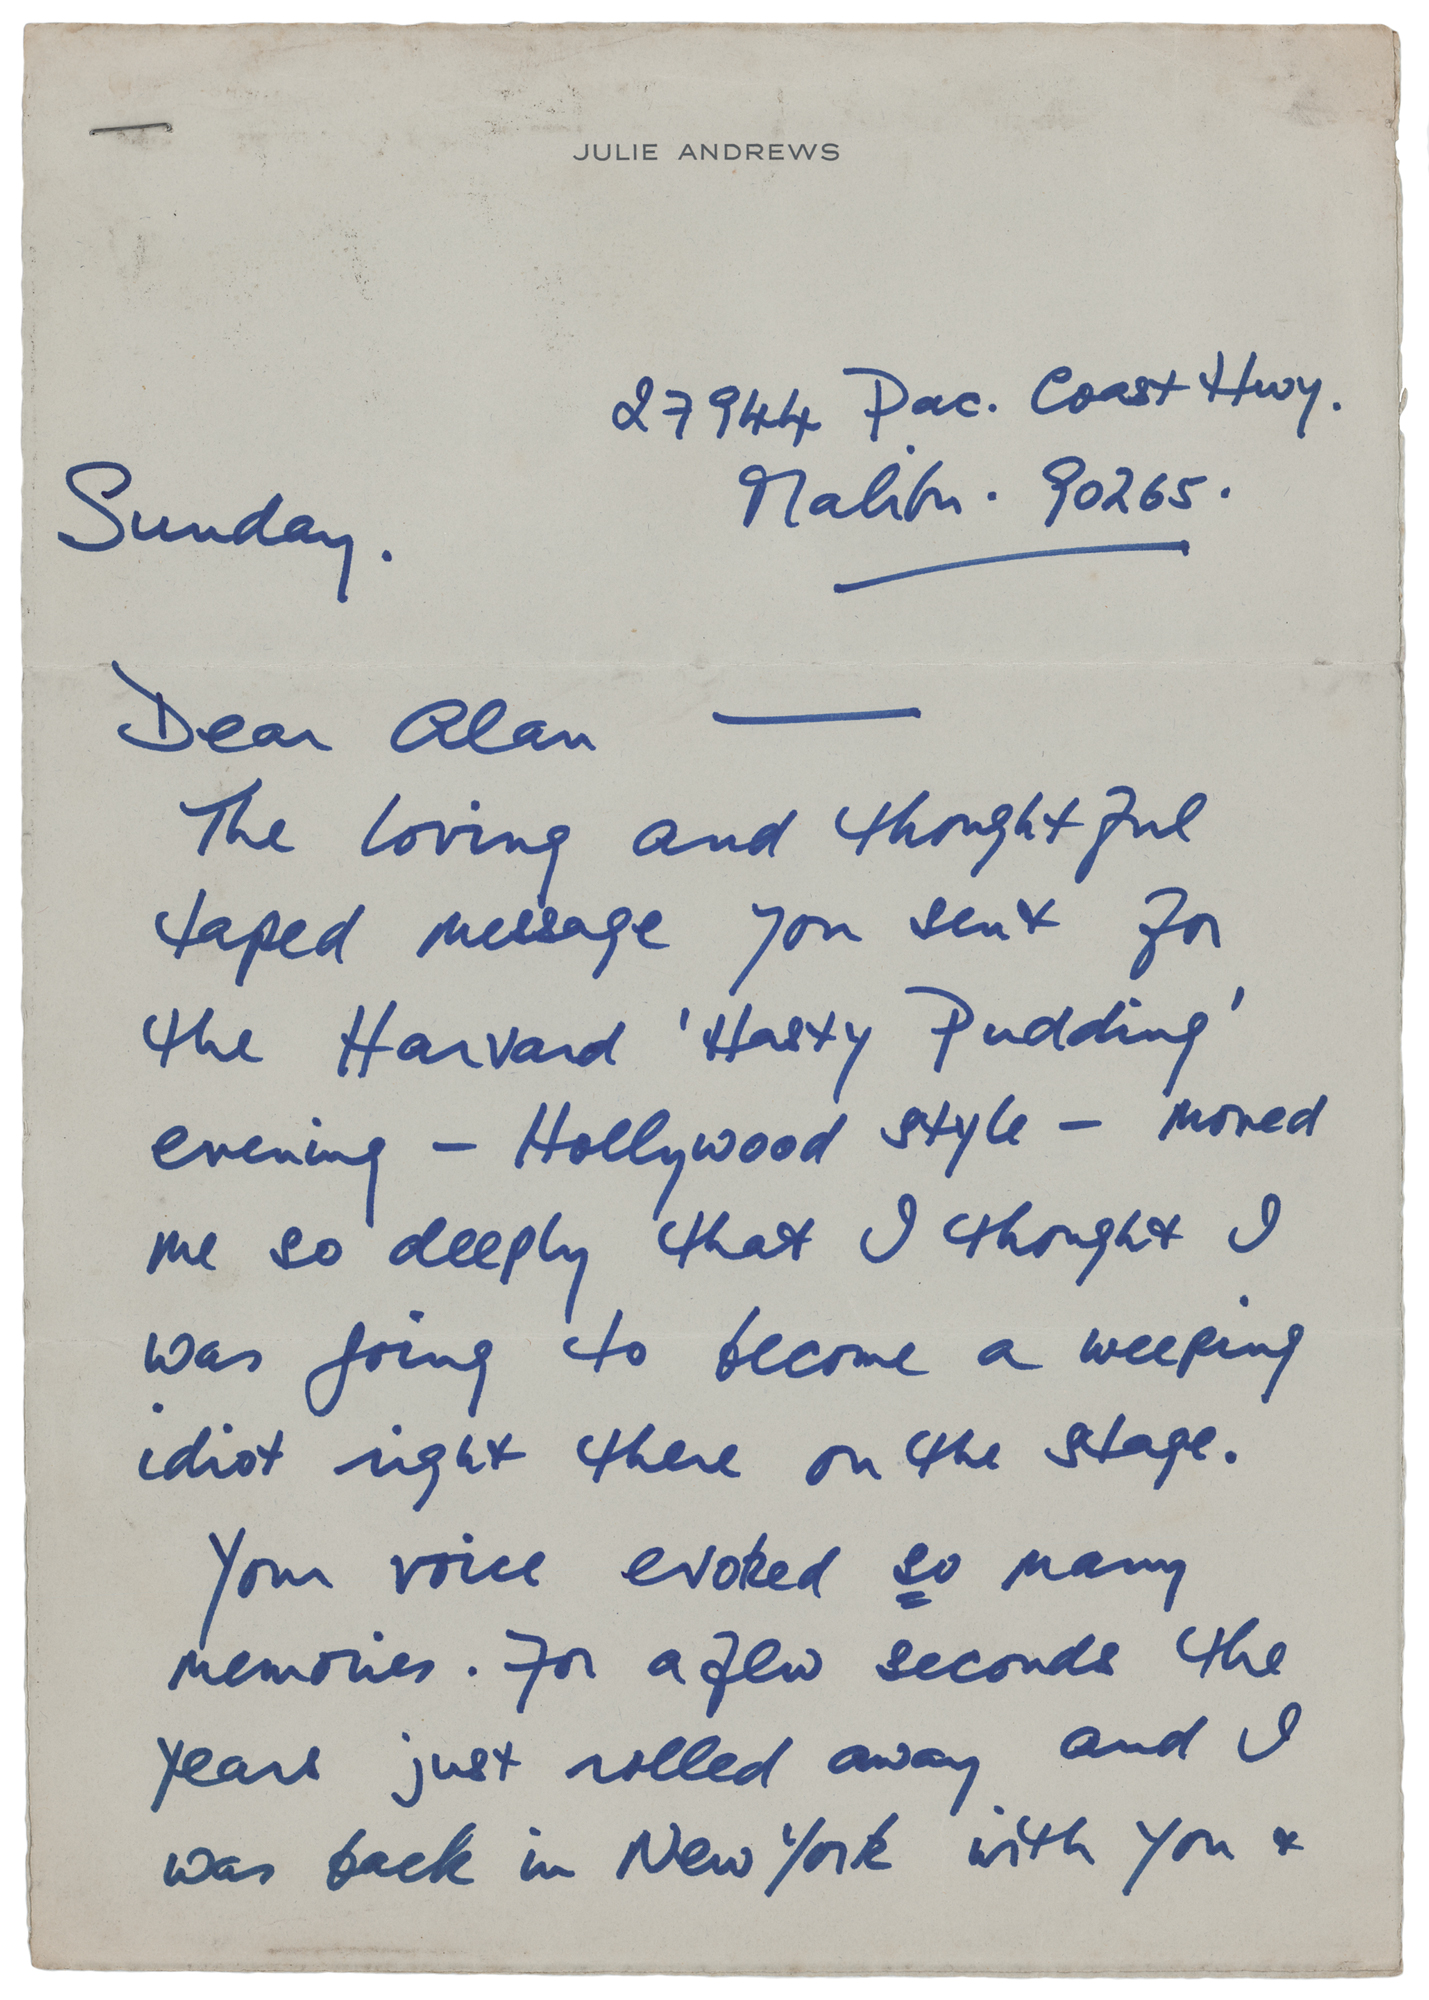 JULIE ANDREWS
27944 Pac. Coast Hwy.
Malibu. 90265.
Sunday.
Dear Alan —
The loving and thoughtful
taped message you sent for
the Harvard 'Hasty Pudding'
evening – Hollywood style – moved
me so deeply that I thought I
was going to become a weeping
idiot right there on the stage.
Your voice evoked so many
memories. For a few seconds the
years just rolled away and I
was back in New York with you &